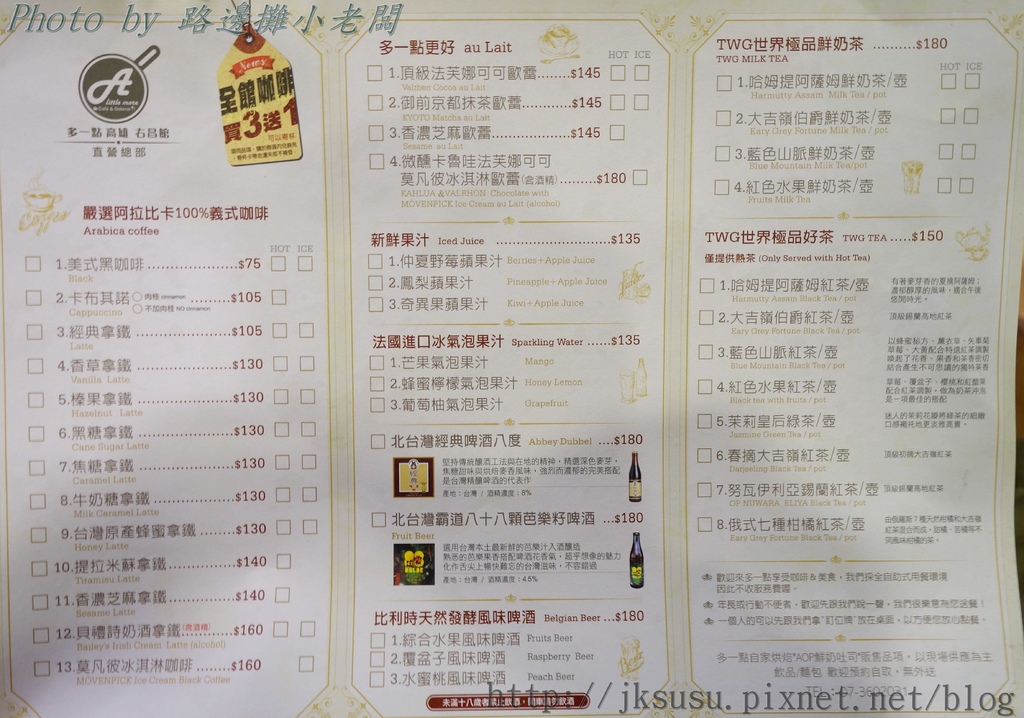 Photo by 路邊攤小老闆
A
little more
Café & Dolence
多一點 高雄 右昌館
直營總部
News
全館咖啡
買3送1
可以寄杯
嚴選阿拉比卡100%義式咖啡
Arabica coffee
Coffee
HOT ICE
1.美式黑咖啡 $75
Black
2.卡布其諾 肉桂 cinnamon $105
不加肉桂 NO cinnamon
Cappuccino
3.經典拿鐵 $105
Latte
4.香草拿鐵 $130
Vanilla Latte
5.榛果拿鐵 $130
Hazelnut Latte
6.黑糖拿鐵 $130
Cane Sugar Latte
7.焦糖拿鐵 $130
Caramel Latte
8.牛奶糖拿鐵 $130
Milk Caramel Latte
9.台灣原產蜂蜜拿鐵 $130
Honey Latte
10.提拉米蘇拿鐵 $140
Tiramisu Latte
11.香濃芝麻拿鐵 $140
Sesame Latte
12.貝禮詩奶酒拿鐵(含酒精) $160
Bailey's Irish Cream Latte (alcohol)
13.莫凡彼冰淇淋咖啡 $160
MÖVENPICK Ice Cream Black Coffee
多一點更好 au Lait
HOT ICE
1.頂級法芙娜可可歐蕾 $145
Valrhon Cocoa au Lait
2.御前京都抹茶歐蕾 $145
KYOTO Matcha au Lait
3.香濃芝麻歐蕾 $145
Sesame au Lait
4.微醺卡魯哇法芙娜可可
莫凡彼冰淇淋歐蕾(含酒精) $180
KAHLUA &VALRHON Chocolate with
MÖVENPICK Ice Cream au Lait (alcohol)
新鮮果汁 Iced Juice $135
1.仲夏野莓蘋果汁 Berries+Apple Juice
2.鳳梨蘋果汁 Pineapple+Apple Juice
3.奇異果蘋果汁 Kiwi+Apple Juice
法國進口冰氣泡果汁 Sparkling Water $135
1.芒果氣泡果汁 Mango
2.蜂蜜檸檬氣泡果汁 Honey Lemon
3.葡萄柚氣泡果汁 Grapefruit
北台灣經典啤酒八度 Abbey Dubbel $180
堅持傳統釀酒工法與在地的精神，精選深色麥芽，
焦糖甜味與烘焙麥香風味，強烈而濃郁的完美搭配
是台灣精釀啤酒的代表作
產地：台灣 / 酒精濃度：8%
北台灣霸道八十八顆芭樂籽啤酒 $180
Fruit Beer
選用台灣本土最新鮮的芭樂汁入酒釀造
熟悉的芭樂果香搭配啤酒花香氣，超乎想像的魅力
化作舌尖上暢快難忘的台灣滋味，不容錯過
產地：台灣 / 酒精濃度：4.6%
比利時天然發酵風味啤酒 Belgian Beer $180
1.綜合水果風味啤酒 Fruits Beer
2.覆盆子風味啤酒 Raspberry Beer
3.水蜜桃風味啤酒 Peach Beer
Beer
未滿十八歲者禁止飲酒，開車請勿飲酒
TWG世界極品鮮奶茶 $180
TWG MILK TEA
HOT ICE
1.哈姆提阿薩姆鮮奶茶/壺
Harmutty Assam Milk Tea / pot
2.大吉嶺伯爵鮮奶茶/壺
Eary Grey Fortune Milk Tea / pot
3.藍色山脈鮮奶茶/壺
Blue Mountain Milk Tea/pot
4.紅色水果鮮奶茶/壺
Fruits Milk Tea
TWG世界極品好茶 TWG TEA $150
僅提供熱茶 (Only Served with Hot Tea)
1.哈姆提阿薩姆紅茶/壺
Harmutty Assam Black Tea / pot
有著麥芽香的夏摘阿薩姆，
濃郁醇厚的風味，適合午後
悠閒時光。
2.大吉嶺伯爵紅茶/壺 頂級錫蘭高地紅茶
Eary Grey Fortune Black Tea / pot
3.藍色山脈紅茶/壺
Blue Mountain Black Tea / pot
以蜂蜜秘方、薰衣草、矢車菊
草莓、大黃配合特選紅茶調製
喚起了花香、果香和茶香密切
結合產生不可思議的獨特茶香
4.紅色水果紅茶/壺
Black tea with fruits / pot
草莓、覆盆子、櫻桃和紅醋栗
配合紅茶調製，做為奶茶沖泡
是一項最佳的搭配
5.茉莉皇后綠茶/壺
Jasmine Green Tea / pot
迷人的茉莉花瓣將綠茶的細緻
口感襯托地更淡雅高貴。
6.春摘大吉嶺紅茶/壺 頂級初摘大吉嶺紅茶
Darjeeling Black Tea / pot
7.努瓦伊利亞錫蘭紅茶/壺 頂級錫蘭高地紅茶
OP NUWARA ELIYA Black Tea / pot
8.俄式七種柑橘紅茶/壺
Eary Grey Fortune Black Tea / pot
歡迎來多一點享受咖啡&美食，我們採全自助式用餐環境
因此不收服務費喔。
年長或行動不便者，歡迎先跟我們說一聲，我們很樂意為您送餐！
一個人的可以先跟我們拿"盯位牌"放在桌面，以方便您放心點餐。
多一點自家烘焙"AOP鮮奶吐司"販售品項，以現場供應為主
飲品/麵包 歡迎預約自取，無外送
http://jksusu.pixnet.net/blog